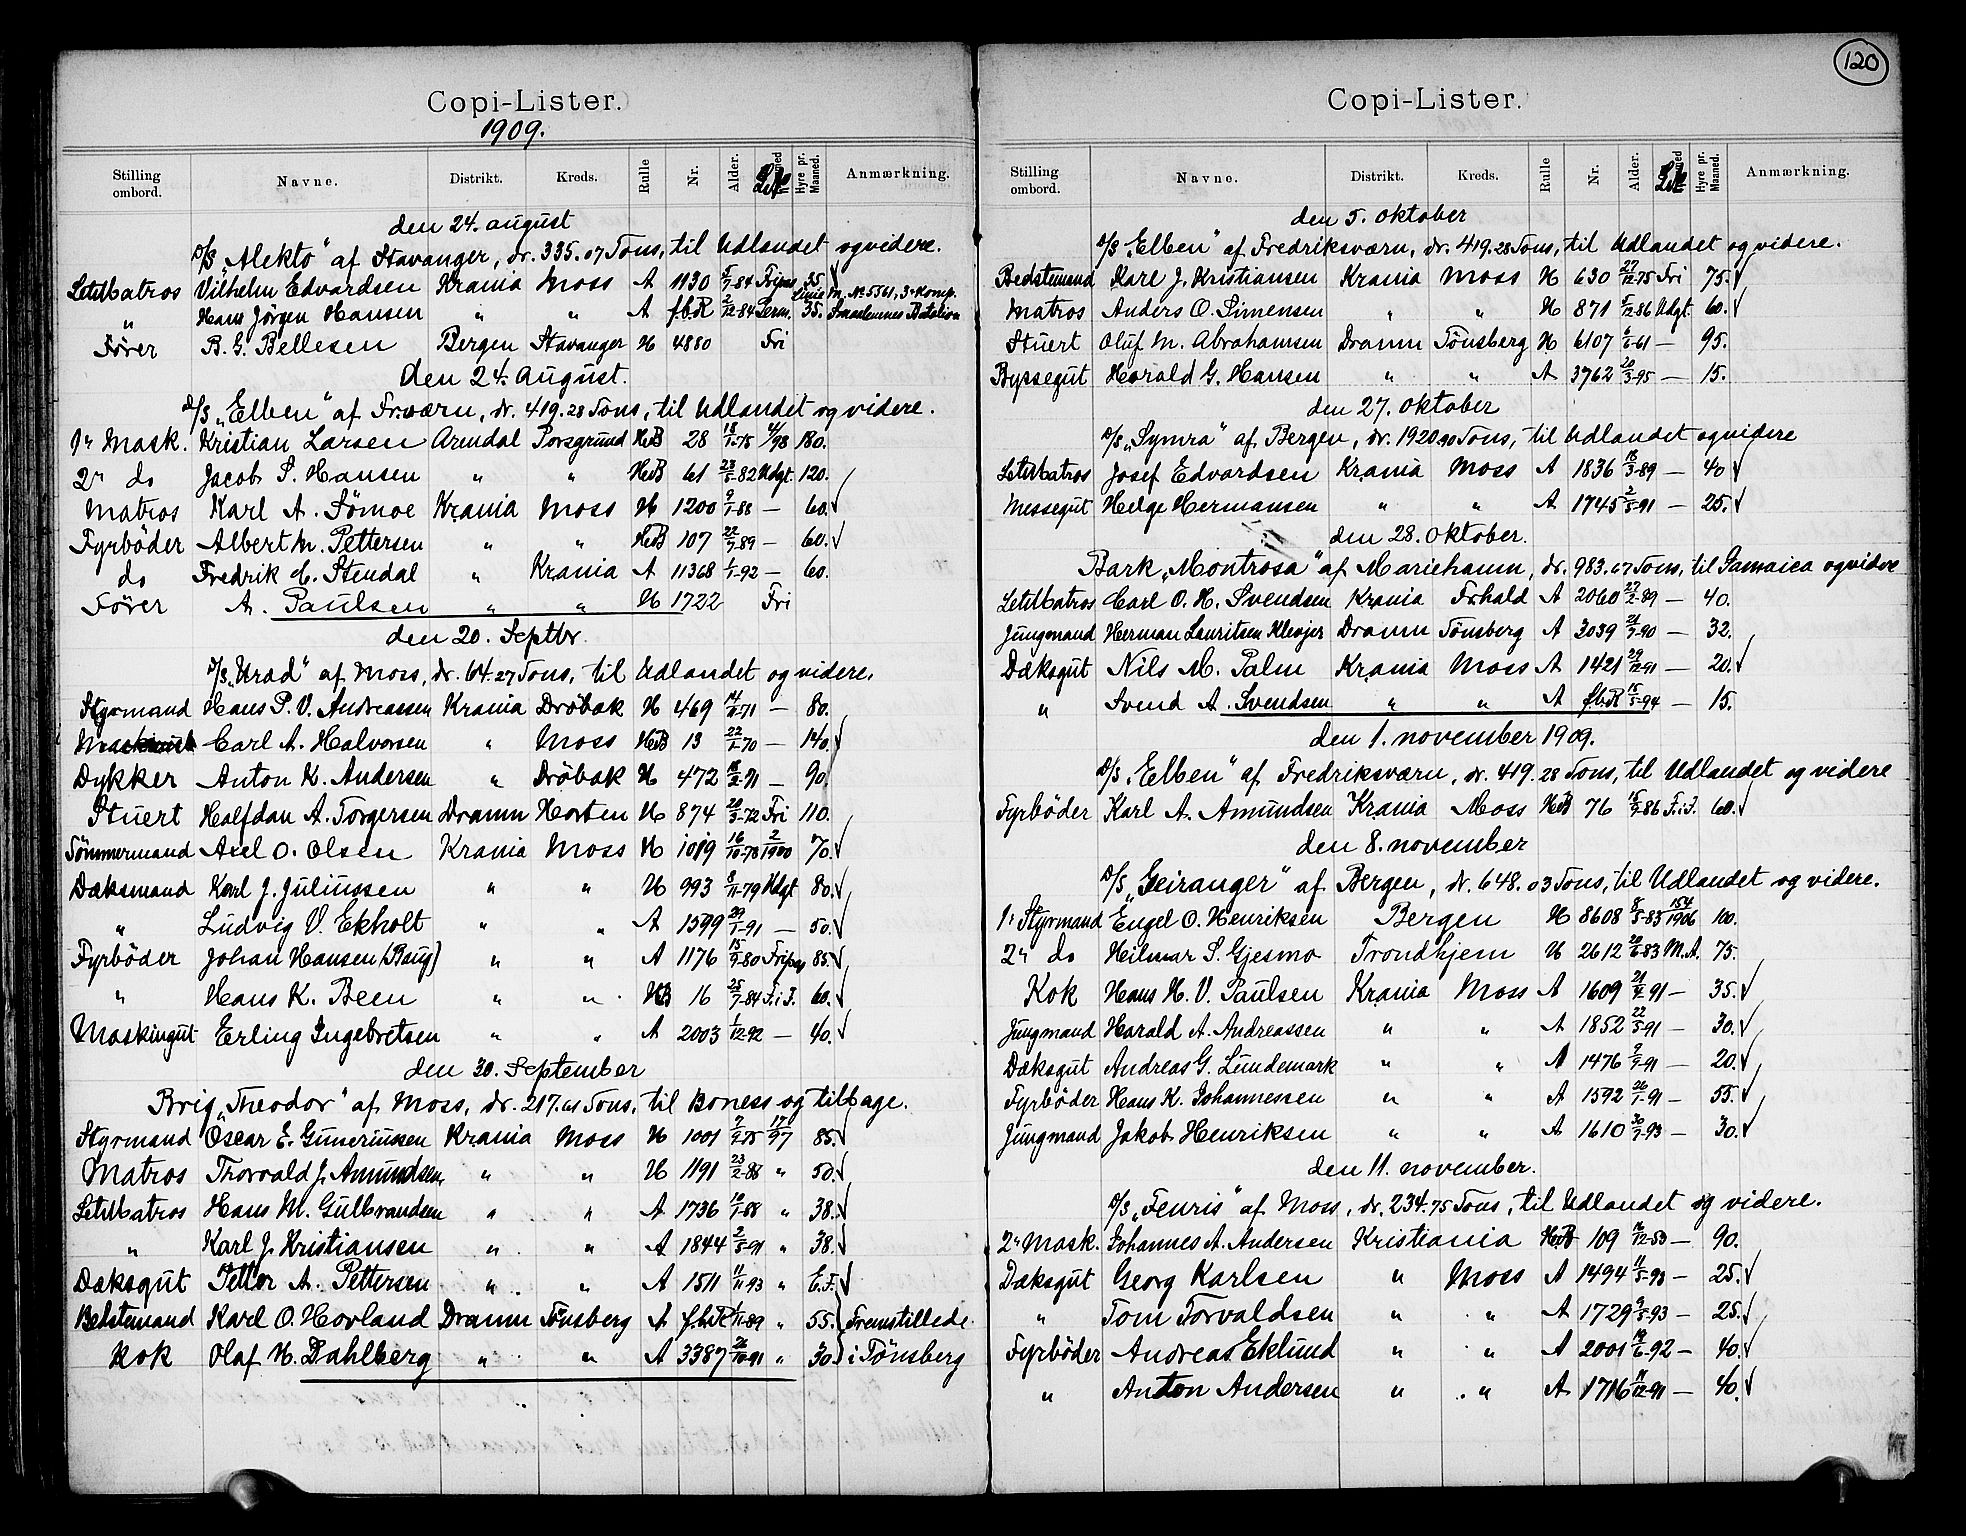 120
Copi-Lister.
1909.
Stilling ombord. Navne. Distrikt. Kreds. Rulle Nr. Alder. Hyre pr. Maaned. Anmærkning.
den 24. august
D/S „Alekto" af Stavanger, dr. 335.07 Tons, til Udlandet og videre.
LetMatros Vilhelm Edvardsen Krania Moss A 1130 5/7-84 Fripas 35. √
" Hans Jörgen Hansen " " A f.b.R 2/12-84 35. M. No 5361, 3die Komp. Smaalennes Batalion
Fører B. G. Bellesen Bergen Stavanger H 4880 Fri
Den 24. august.
D/S „Elben" af Frværn, dr. 419.28 Tons, til Udlandet og videre.
1ste Mask. Kristian Larsen Arendal Porsgrund HeB 28 18/1-75 4/98 180.
2n do Jacob S. Hansen " " HeB 61 23/5-82 Udgt. 120.
Matros Karl A. Sömoe Krania Moss H 1200 9/1-88 — 60. √
Fyrböder Albert M. Pettersen " " HeB 107 22/7-89 — 60. √
do Fredrik C. Stendal " Krania A 11368 1/1-92 — 60.
Förer A. Paulsen " " H 1722 Fri
den 20. Septbr.
D/S „Uræd" af Moss, dr. 64.27 Tons, til Udlandet og videre.
Styrmand Hans P. V. Andreassen Krania Dröbak H 469 14/8-71 — 80.
Maskinist Carl A. Halvorsen " Moss HeB 13 22/1-70 — 140. √
Dykker Anton K. Andersen " Dröbak H 472 — 90.
Stuert Halfdan A. Torgersen Dramn Horten H 874 20/3-72 Fri 110.
Tömmermand Axel O. Olsen Krania Moss H 1019 16/10-78 2/1900 70. √
Dæksmand Karl J. Juliussen " " H 993 8/11-79 Udgt 80. √
" Ludvig V. Ekholt " " A 1599 29/1-91 — 50. √
Fyrböder Johan Hansen (Raug) " " A 1176 15/9-80 Fripas 85. √
" Hans K. Been " " HeB 16 25/7-84 F.i.F. 60. √
Maskingut Erling Ingebretsen " " A 2003 1/12-92 — 40. √
den 30. September
Brig „Theodor" af Moss, dr. 217.61 Tons, til Boness og tilbage.
Styrmand Oscar E. Guneriussen Krania Moss H 1001 7/9-75 85. √
Matros Thorvald J. Amundsen " " H 1191 23/2-88 " 50. √
LetMatros Hans M. Gulbrandsen " " A 1736 10/1-88 " 38. √
" Karl J. Kristiansen " " A 1844 2/5-91 " 38. √
Dæksgut Petter A. Pettersen " " A 1511 11/11-93 " E.F. √
Bedstemand Karl O. Hovland Dramn Tönsberg A f.b.R 1/11-89 " 55. } Fremstillede
Kok Olaf H. Dahlberg " " A 3387 26/10-91 " 30. } i Tönsberg
Copi-Lister.
Stilling ombord. Navne. Distrikt. Kreds. Rulle Nr. Alder. Hyre pr. Maaned. Anmærkning.
den 5. oktober
D/S „Elben" af Fredriksværn, dr. 419.28 Tons, til Udlandet og videre.
Bedstemand Karl J. Kristiansen Krania Moss H 630 27/12-75 Fri 75. √
Matros Anders O. Simensen " " H 871 5/12-86 Udgt. 60. √
Stuert Oluf M. Abrahamsen Dramn Tönsberg H 6107 6/6-61 — 95.
Byssegut Harald G. Hansen " " A 3762 20/3-95 — 15.
den 27. oktober
D/S „Symra" af Bergen, dr. 1920.90 Tons, til Udlandet og videre
LetMatros Josef Edvardsen Krania Moss A 1836 18/3-89 — 40 √
Messegut Helge Hermansen " " A 1745 2/5-91 — 25. √
den 28. oktober.
Bark „Montrosa" af Mariehamn, dr. 983.67 Tons, til Jamaica og videre
LetMatros Carl O. H. Svendsen Krania Frhald A 2060 27/2-89 — 40.
Jungmand Herman Lauritsen Klevjer Dramn Tönsberg A 3039 21/7-90 — 32.
Dæksgut Nils M. Palm Krania Moss A 1421 29/12-91 — 20. √
" Svend A. Svendsen " " A f.b.R 15/5-94 — 15.
den 1. november 1909.
D/S „Elben" af Fredriksværn, dr. 419.28 Tons, til Udlandet og videre
Fyrböder Karl A. Amundsen Krania Moss HeB 76 15/9-86 F.i.F. 60. √
den 8. november
D/S „Geiranger" af Bergen, dr. 648.03 Tons, til Udlandet og videre.
1ste Styrmand Engel O. Henriksen Bergen H 8608 8/5-83 154/1906 100.
2n do Heilmar S. Gjesmo Trondhjem H 2612 20/6-83 M.A. 75.
Kok Hans H. V. Paulsen Krania Moss A 1609 21/4-91 — 35. √
Jungmand Harald A. Andreassen " " A 1852 22/5-91 — 30. √
Dæksgut Andreas G. Lundemark " " A 1476 9/9-91 — 20. √
Fyrböder Hans K. Johannessen " " A 1592 26/1-91 — 55. √
Jungmand Jakob Henriksen " " A 1610 30/7-93 — 30. √
den 11. november.
D/S „Fenris" af Moss, dr. 234.75 Tons, til Udlandet og videre.
2n Mask. Johannes A. Andersen Kristiania HeB 109 — 90.
Dæksgut Georg Karlsen " Moss A 1494 11/5-93 — 25. √
" Tom Torvaldsen " " A 1729 9/5-93 — 25. √
Fyrböder Andreas Eklund " " A 2001 19/6-92 — 40. √
" Anton Andersen " " A 1716 11/12-91 — 40. √